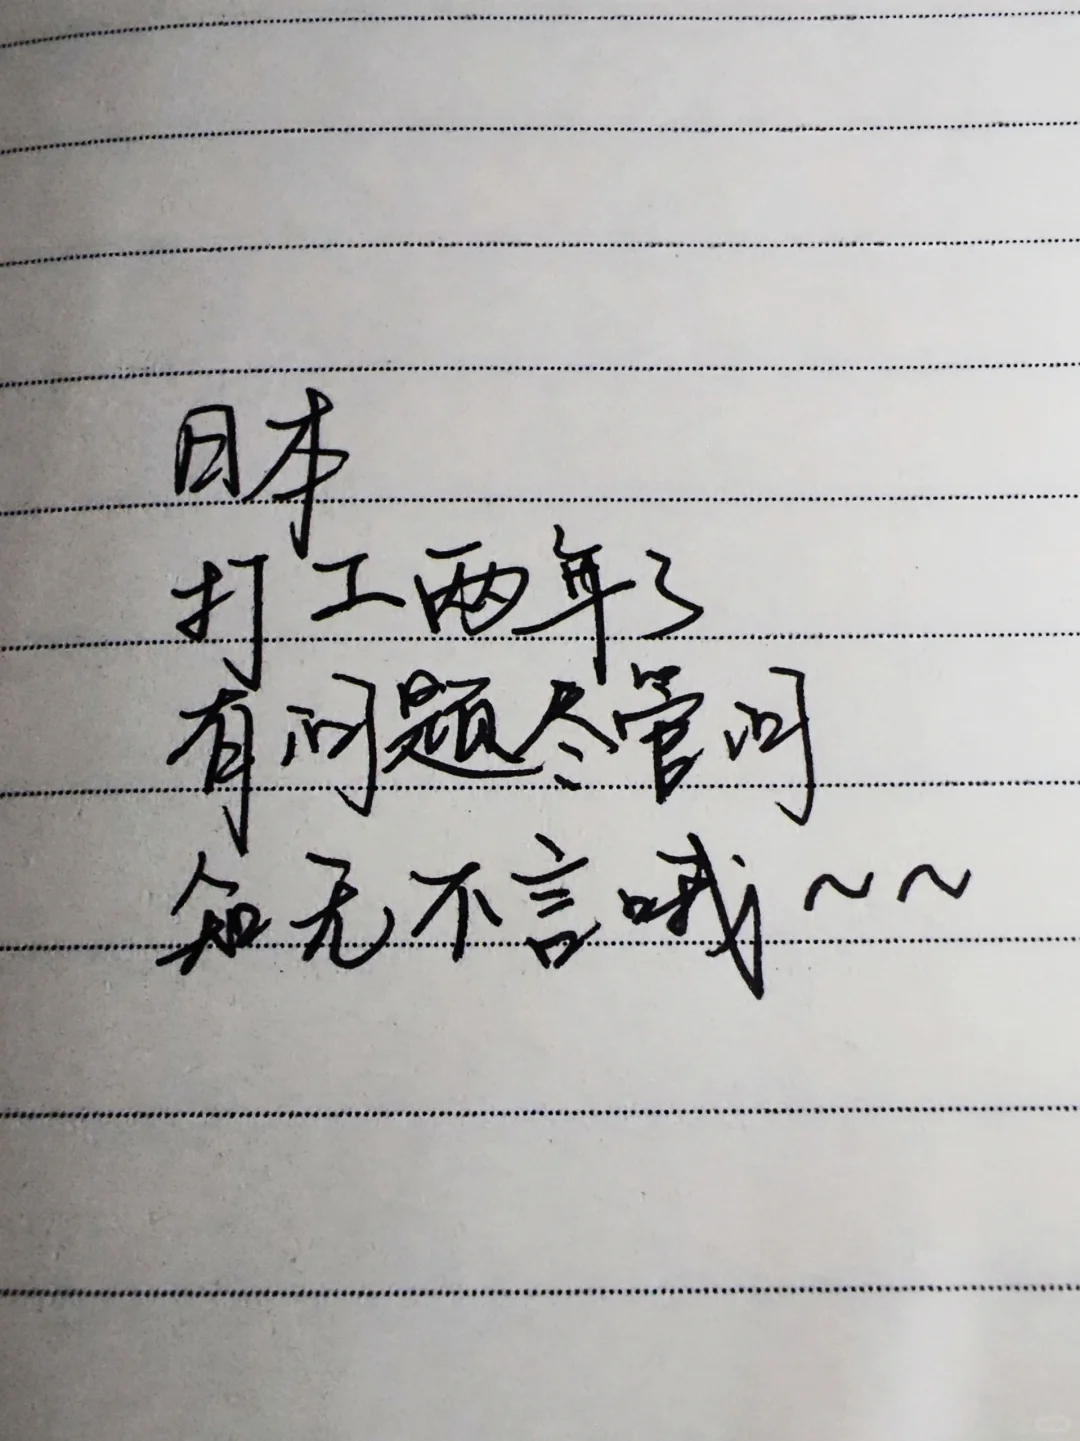 日本
打工两年了
有问题尽管问
知无不言哦~~